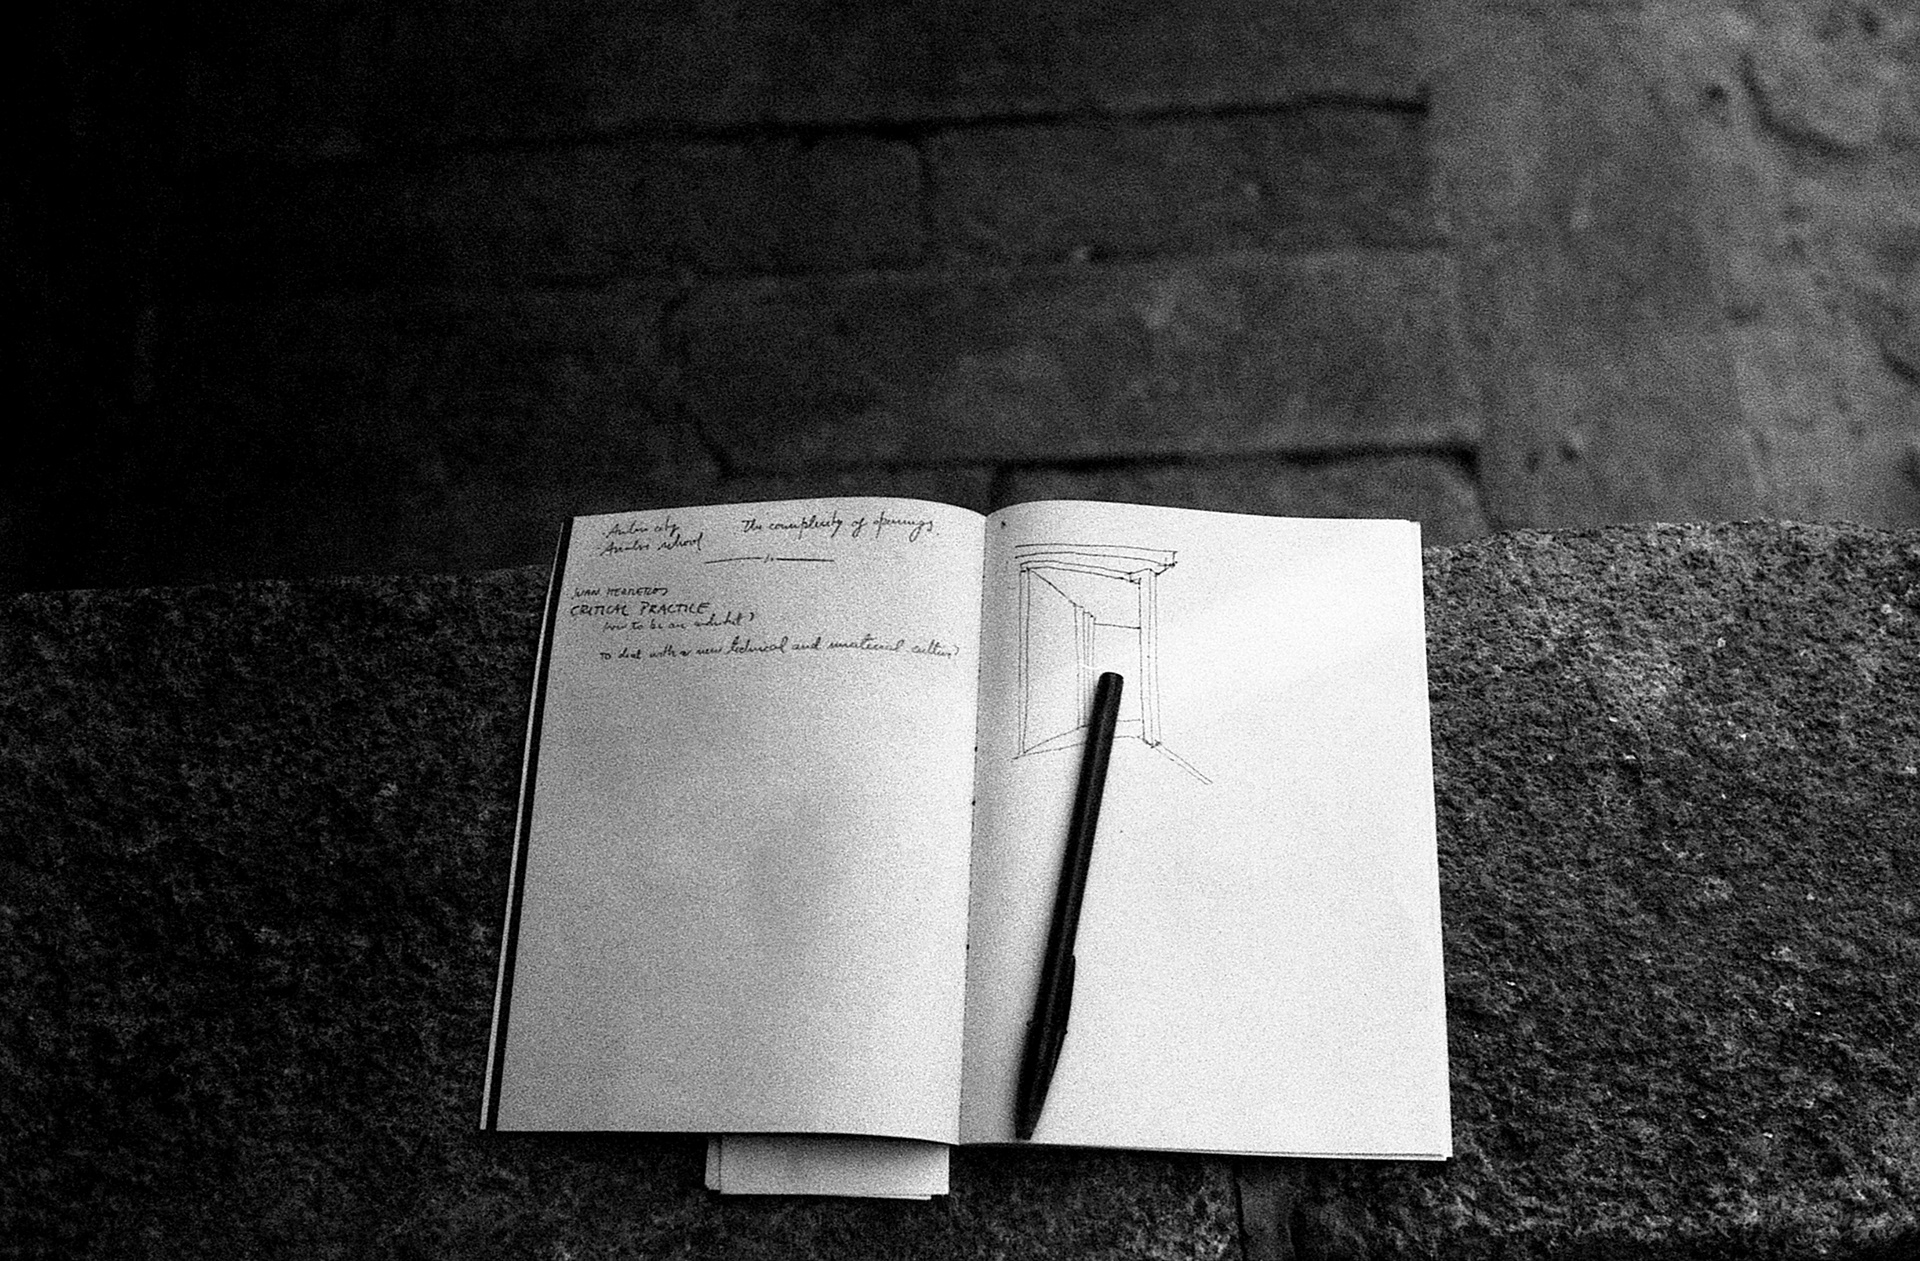 school
The complexity of openings.
JUAN HERREROS
CRITICAL PRACTICE
how to be an architect?
to deal with a new technical and material culture?